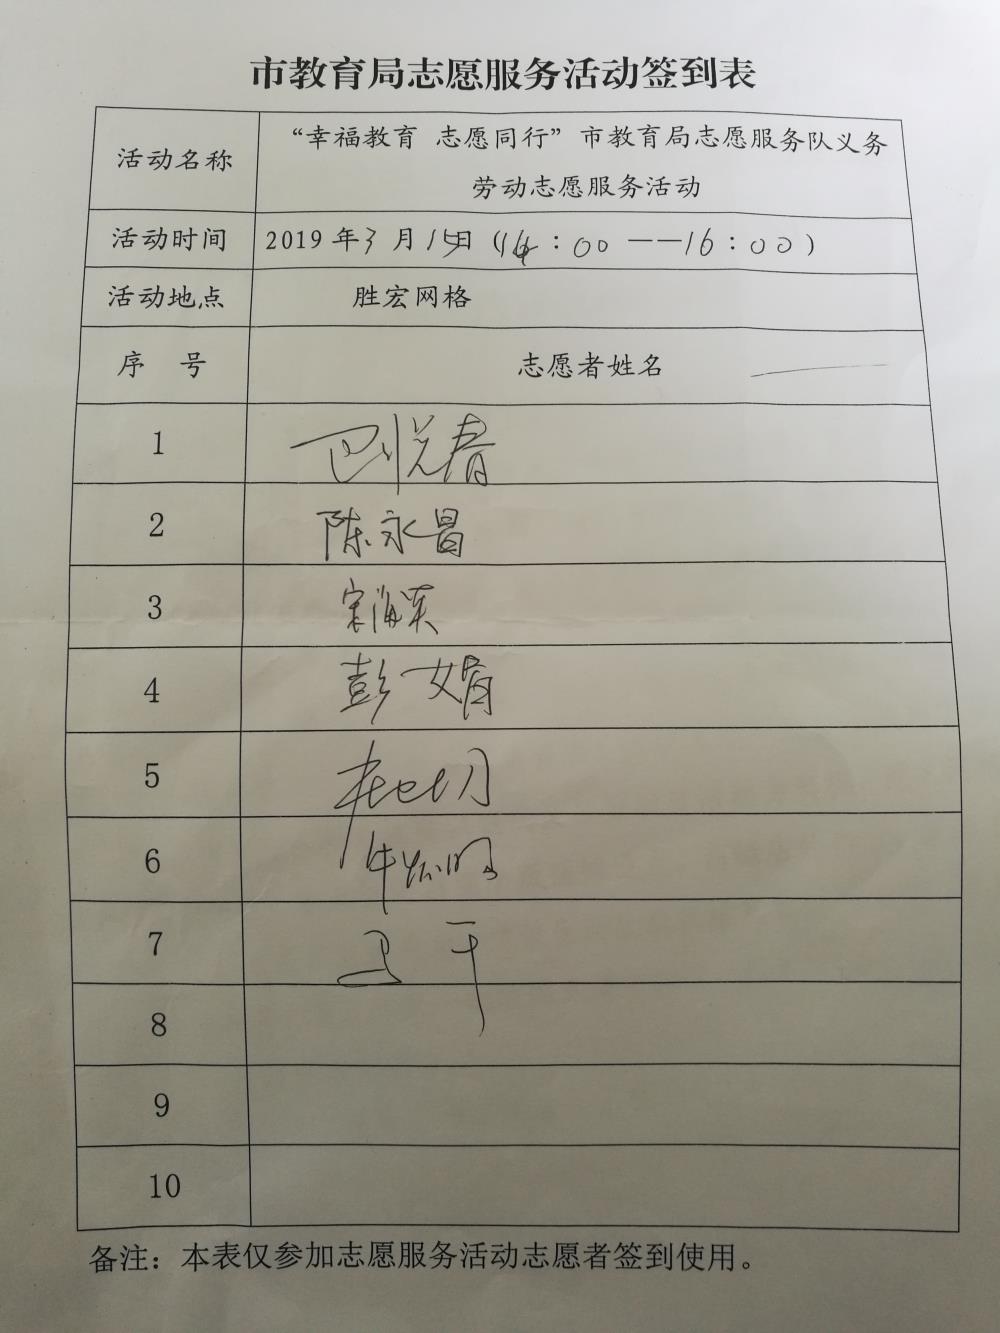 市教育局志愿服务活动签到表
活动名称
“幸福教育 志愿同行”市教育局志愿服务队义务
劳动志愿服务活动
活动时间 2019年3月15日（14：00——16：00）
活动地点 胜宏网格
序 号 志愿者姓名
1
2 陈永昌
3 宋海英
4 彭婧
5
6 牛
7 卫平
8
9
10
备注：本表仅参加志愿服务活动志愿者签到使用。